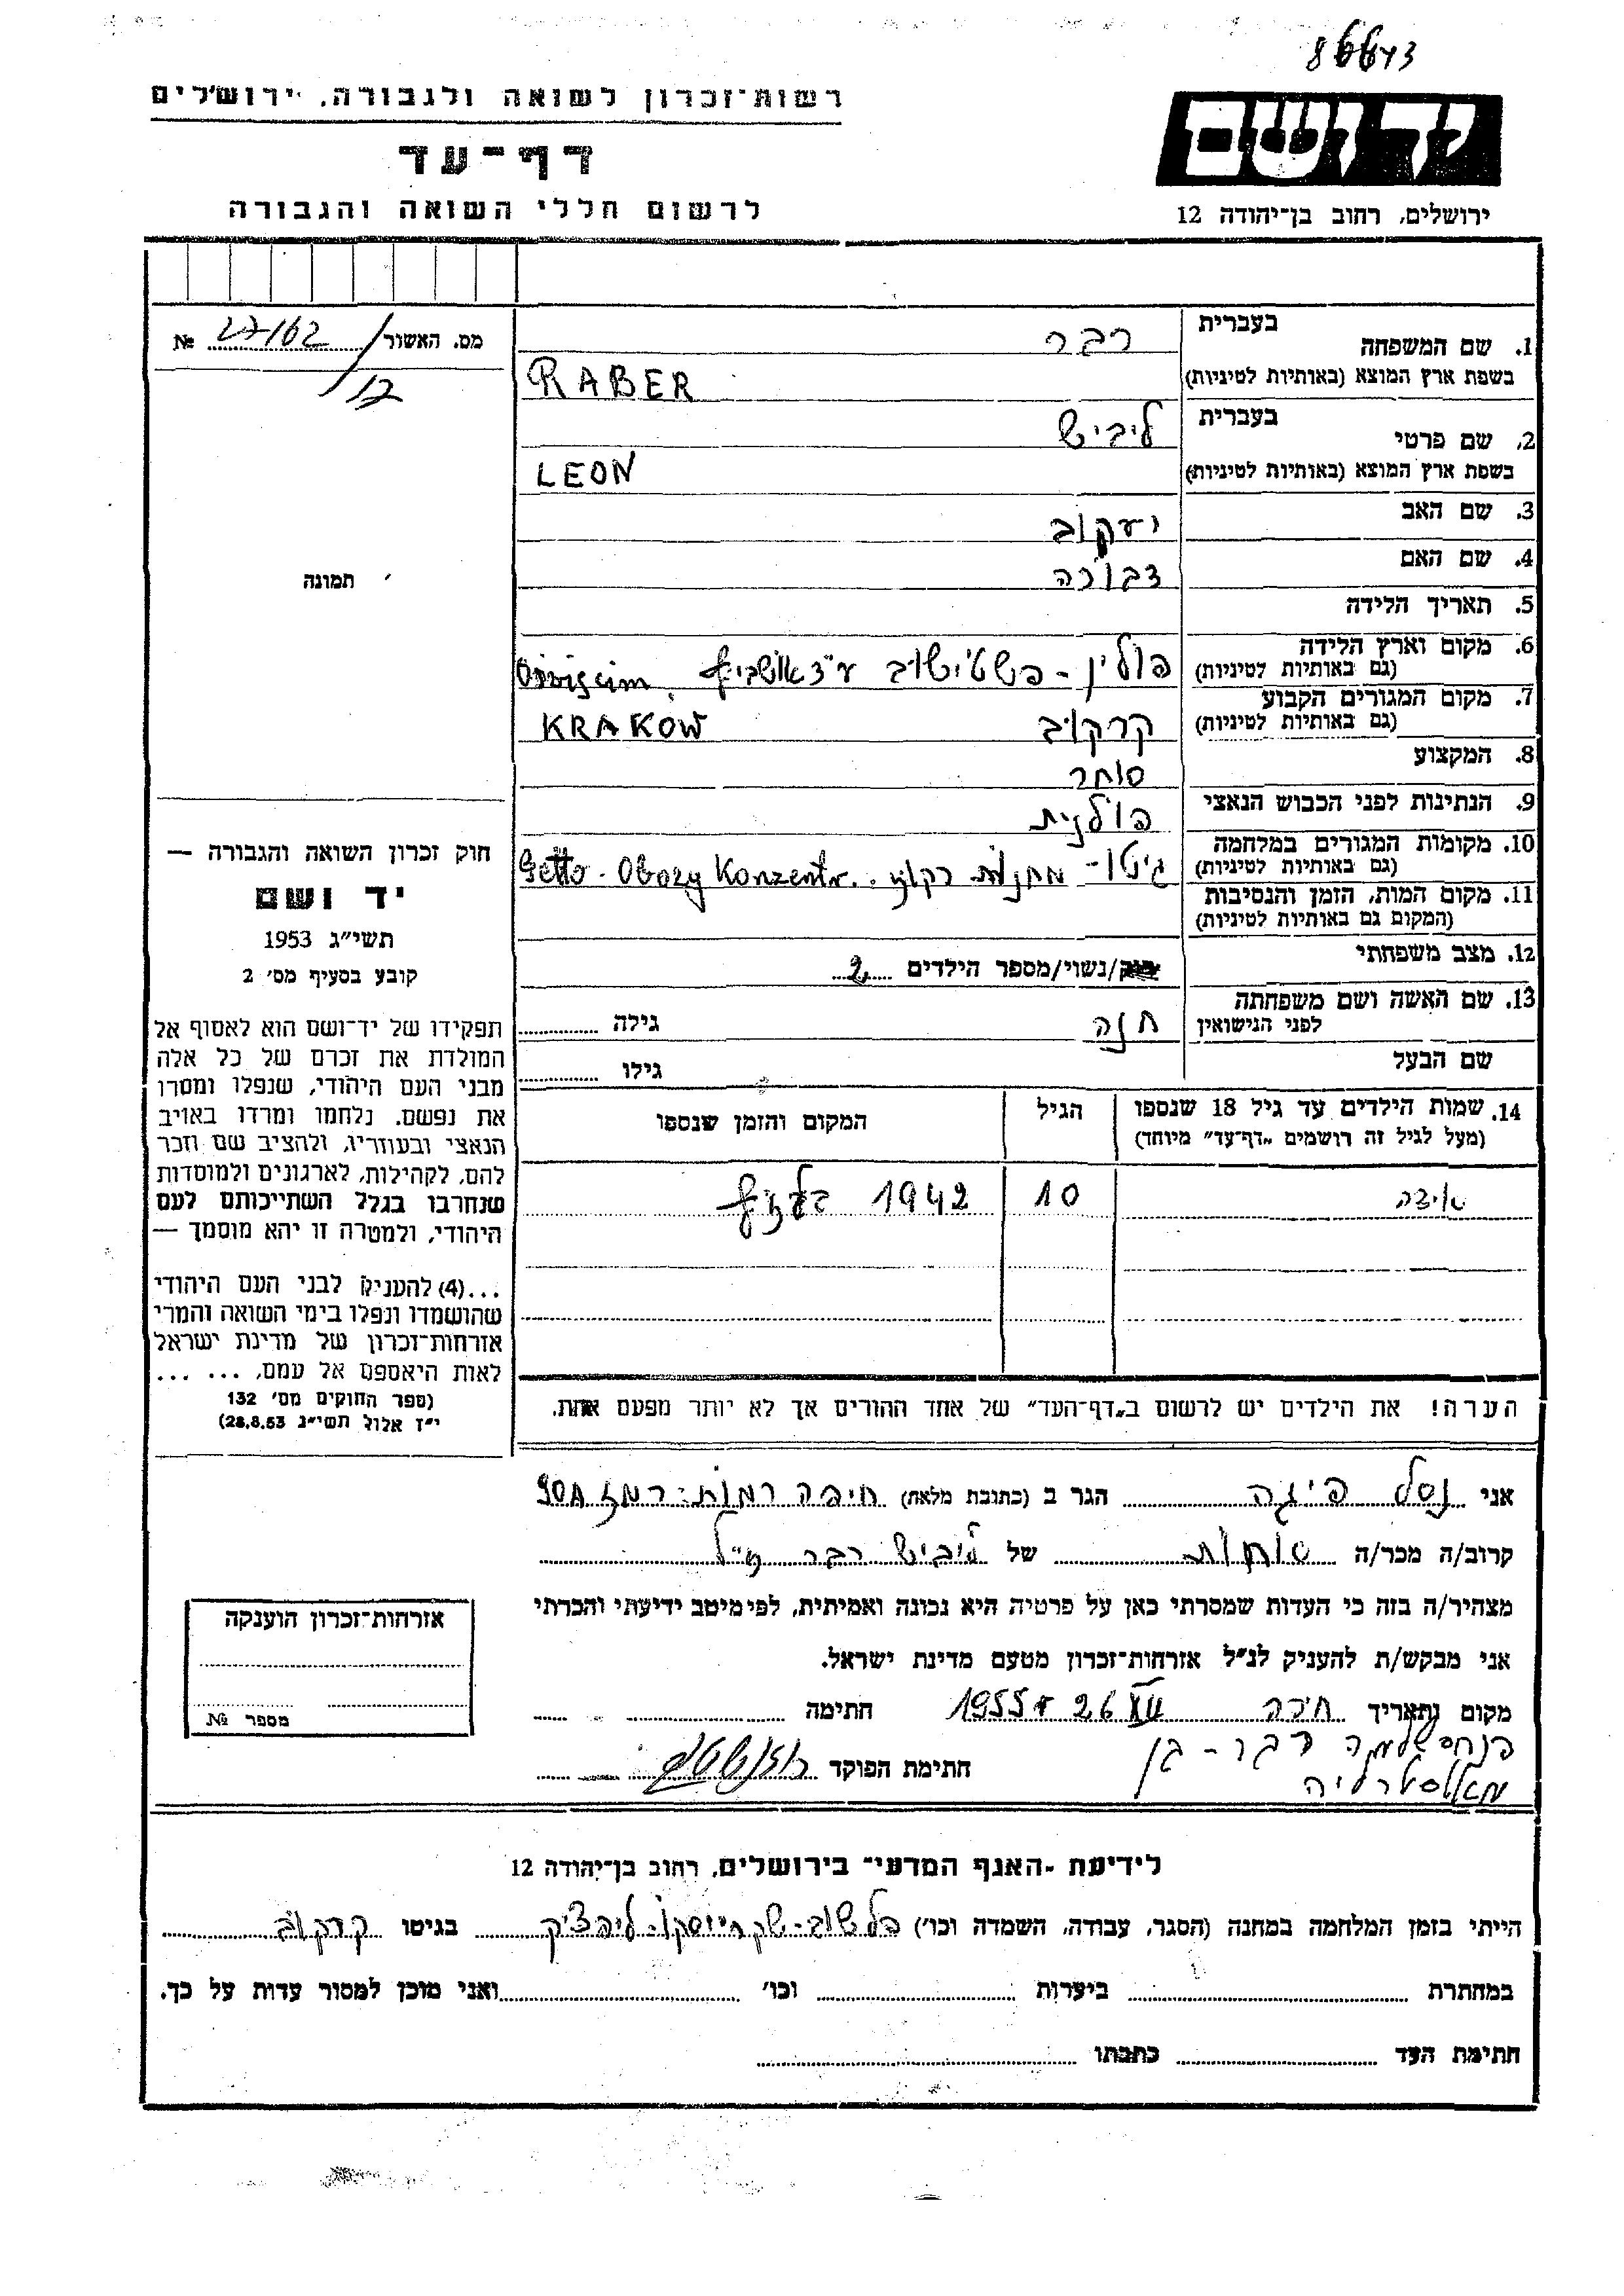 86643
רשות־זכרון לשואה ולגבורה, ירושלים
יד ושם
דף־עד
לרשום חללי השואה והגבורה
ירושלים, רחוב בן־יהודה 12
מס. האשור № 27162/12
1. שם המשפחה בעברית רבר
בשפת ארץ המוצא (באותיות לטיניות) RABER
2. שם פרטי בעברית ליביש
בשפת ארץ המוצא (באותיות לטיניות) LEON
3. שם האב יעקוב
4. שם האם דבורה
תמונה
5. תאריך הלידה
6. מקום וארץ הלידה פולין - ע"י
(גם באותיות לטיניות)
7. מקום המגורים הקבוע קרקוב KRAKOW
(גם באותיות לטיניות)
8. המקצוע סוחר
9. הנתינות לפני הכבוש הנאצי פולנית
10. מקומות המגורים במלחמה גיטו - מחנות Getto - Obozy Konzentr.
(גם באותיות לטיניות)
11. מקום המות, הזמן והנסיבות
(המקום גם באותיות לטיניות)
12. מצב משפחתי רוק/נשוי/מספר הילדים 2
13. שם האשה ושם משפחתה חנה גילה
לפני הנישואין
שם הבעל גילו
14. שמות הילדים עד גיל 18 שנספו הגיל המקום והזמן שנספו
(מעל לגיל זה רושמים „דף־עד” מיוחד)
אידה 10 1942
הערה! את הילדים יש לרשום ב„דף־העד” של אחד ההורים אך לא יותר מפעם אחת.
חוק זכרון השואה והגבורה —
יד ושם
תשי״ג 1953
קובע בסעיף מס׳ 2
תפקידו של יד־ושם הוא לאסוף אל
המולדת את זכרם של כל אלה
מבני העם היהודי, שנפלו ומסרו
את נפשם, נלחמו ומרדו באויב
הנאצי ובעוזריו, ולהציב שם וזכר
להם, לקהילות, לארגונים ולמוסדות
שנחרבו בגלל השתייכותם לעם
היהודי, ולמטרה זו יהא מוסמך —
...(4) להעניק לבני העם היהודי
שהושמדו ונפלו בימי השואה והמרי
אזרחות־זכרון של מדינת ישראל
לאות היאספם אל עמם, ... ...
(ספר החוקים מס׳ 132
י״ז אלול תשי״ג 28.8.53)
אני נסל פיגה הגר ב (כתובת מלאה) חיפה רמות־רמז 90A
קרוב/ה מכר/ה אחות של ליביש רבר ז״ל
מצהיר/ה בזה כי העדות שמסרתי כאן על פרטיה היא נכונה ואמיתית, לפי מיטב ידיעתי והכרתי
אני מבקש/ת להעניק לנ״ל אזרחות־זכרון מטעם מדינת ישראל.
מקום ותאריך חיפה 26 XII 1955 חתימה
פנחס שלמה רבר - בן
מאוסטרליה
חתימת הפוקד
אזרחות־זכרון הוענקה
מספר №
לידיעת „האגף המדעי” בירושלים, רחוב בן־יהודה 12
הייתי בזמן המלחמה במחנה (הסגר, עבודה, השמדה וכו׳) בגיטו קרקוב
במחתרת ביערות וכו׳ ואני מוכן למסור עדות על כך.
חתימת העד כתבתו